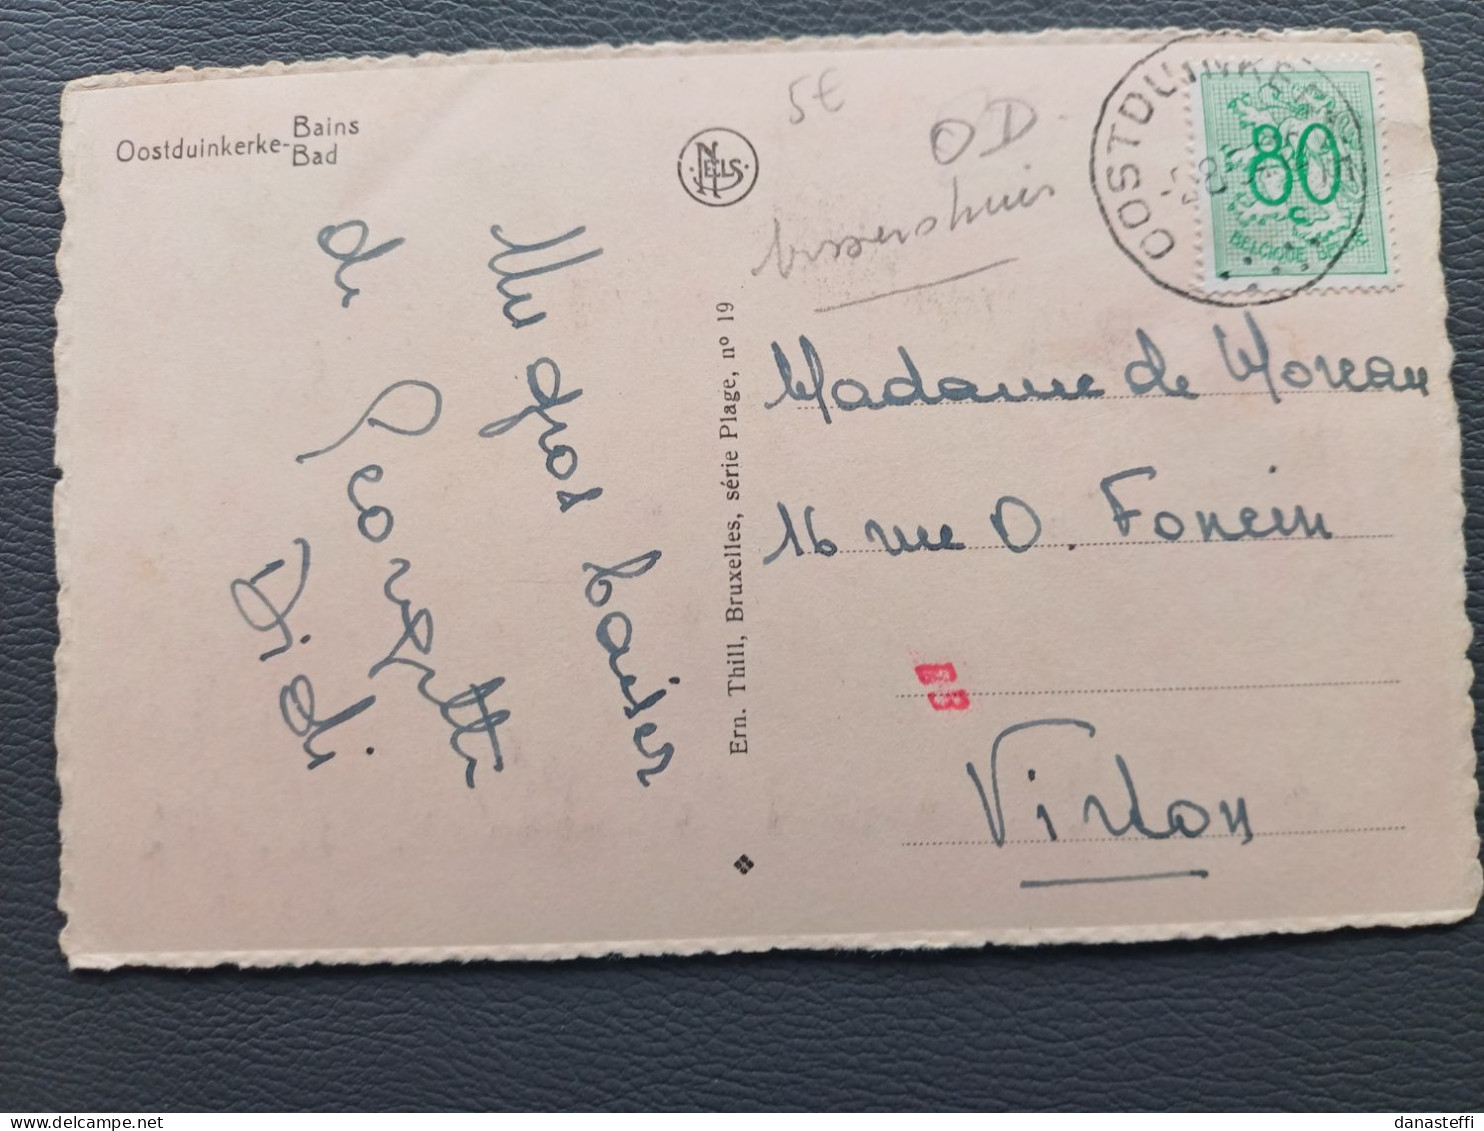 Oostduinkerke-Bains
Bad
5€
OD.
vissershuis
NELS
OOSTDUINKERKE
80
c
BELGIQUE BELGIE
Un gros baiser
de Georgette
Didi
Ern. Thill, Bruxelles, série Plage, nº 19
Madame de Moreau
16 rue O. Foncin
Virton
danasteffi